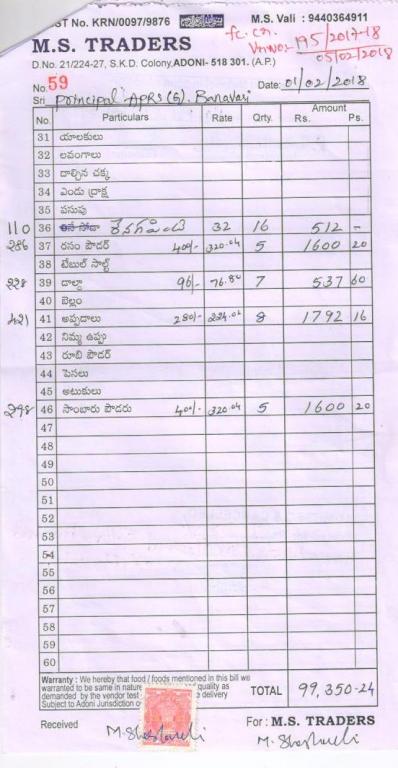 ST No. KRN/0097/9876 M.S. Vali : 9440364911
M.S. TRADERS
fc. cn.
Vr.No. 195/2017-18
05/02/2018
D.No. 21/224-27, S.K.D. Colony, ADONI- 518 301. (A.P.)
No. 59 Date: 01/02/2018
Sri Principal APRS (G). Banavasi
No. Particulars Rate Qrty. Amount
Rs. Ps.
31 యాలకులు
32 లవంగాలు
33 దాల్చిన చక్క
34 ఎండు ద్రాక్ష
35 పసుపు
110 36 తినే సోడా శెనగపిండి 32 16 512 -
286 37 రసం పౌడర్ 400/- 320.04 5 1600 20
38 టేబుల్ సాల్ట్
228 39 డాల్డా 96/- 76.80 7 537 60
40 బెల్లం
421 41 అప్పడాలు 280/- 224.02 8 1792 16
42 నిమ్మ ఉప్పు
43 రూబి పౌడర్
44 పెసలు
45 అటుకులు
298 46 సాంబారు పౌడరు 400/- 320.04 5 1600 20
47
48
49
50
51
52
53
54
55
56
57
58
59
60
Warranty : We hereby that food / foods mentioned in this bill we
warranted to be same in nature quality as
demanded by the vendor test delivery
Subject to Adoni Jurisdiction
TOTAL 99,350-24
Received For : M.S. TRADERS